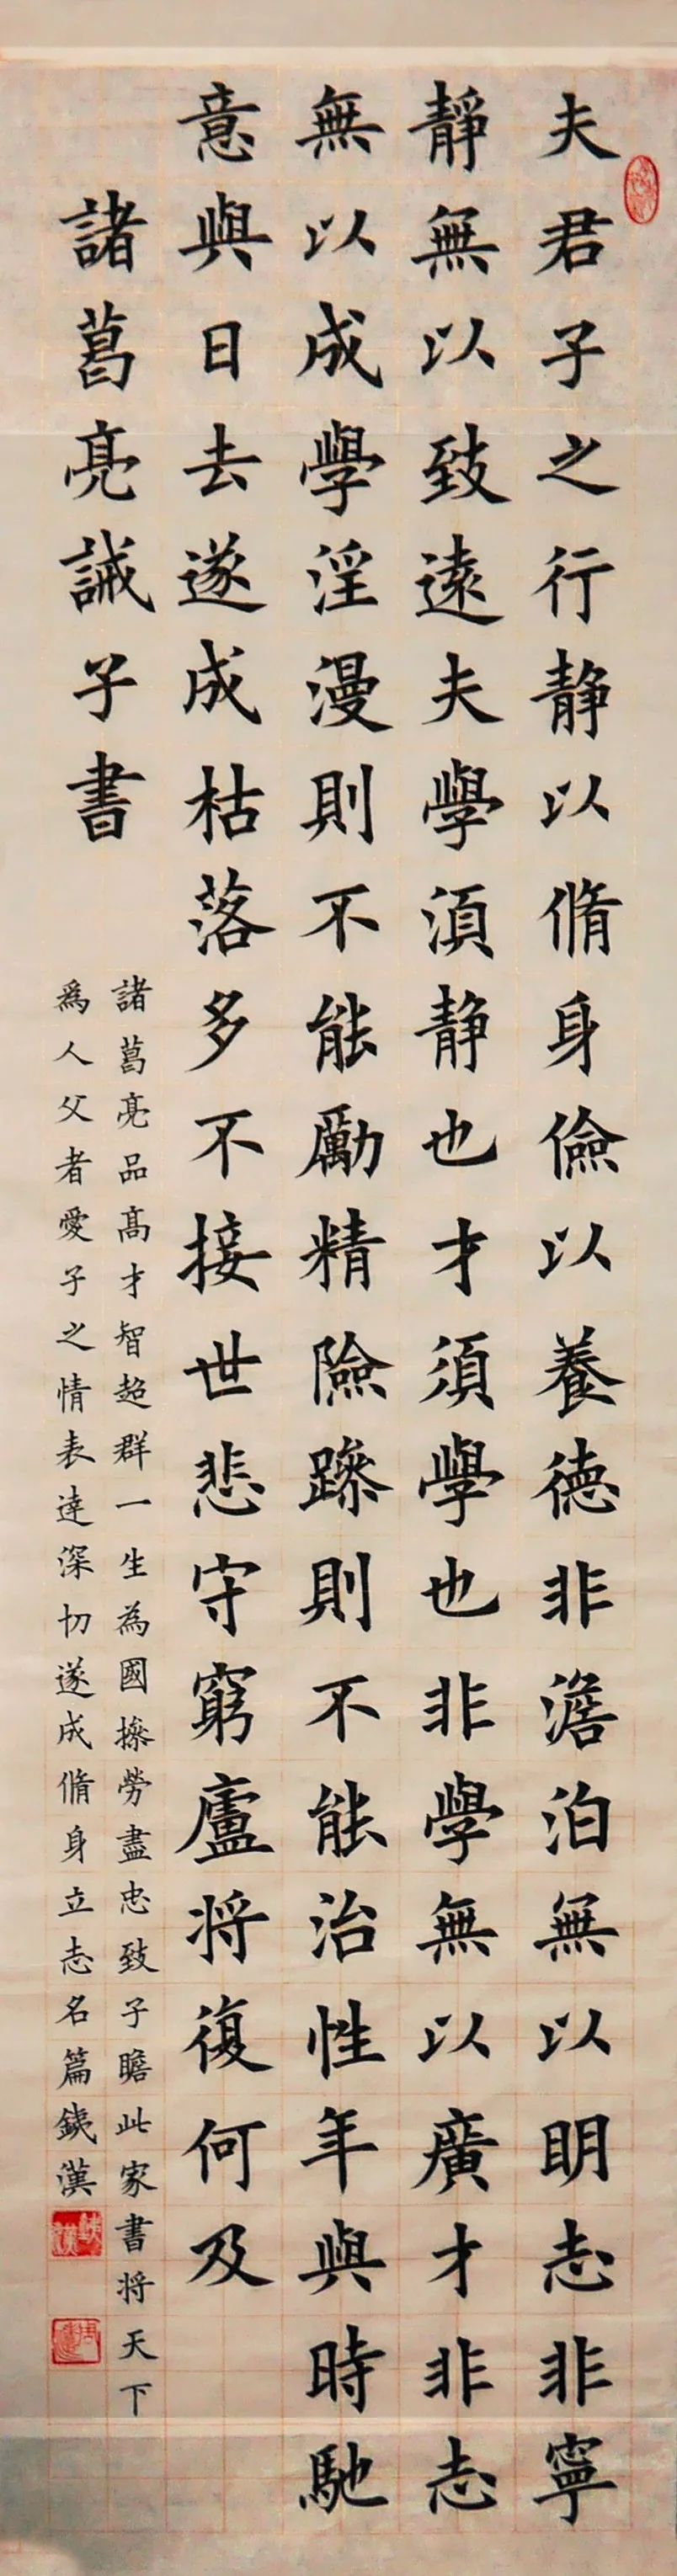 夫君子之行静以脩身儉以養德非澹泊無以明志非寧
靜無以致遠夫學須静也才須學也非學無以廣才非志
無以成學淫漫則不能勵精險躁則不能治性年與時馳
意與日去遂成枯落多不接世悲守窮廬将復何及
諸葛亮誡子書
諸葛亮品高才智超群一生為國操勞盡忠致子瞻此家書将天下
爲人父者愛子之情表達深切遂成脩身立志名篇鐵漢